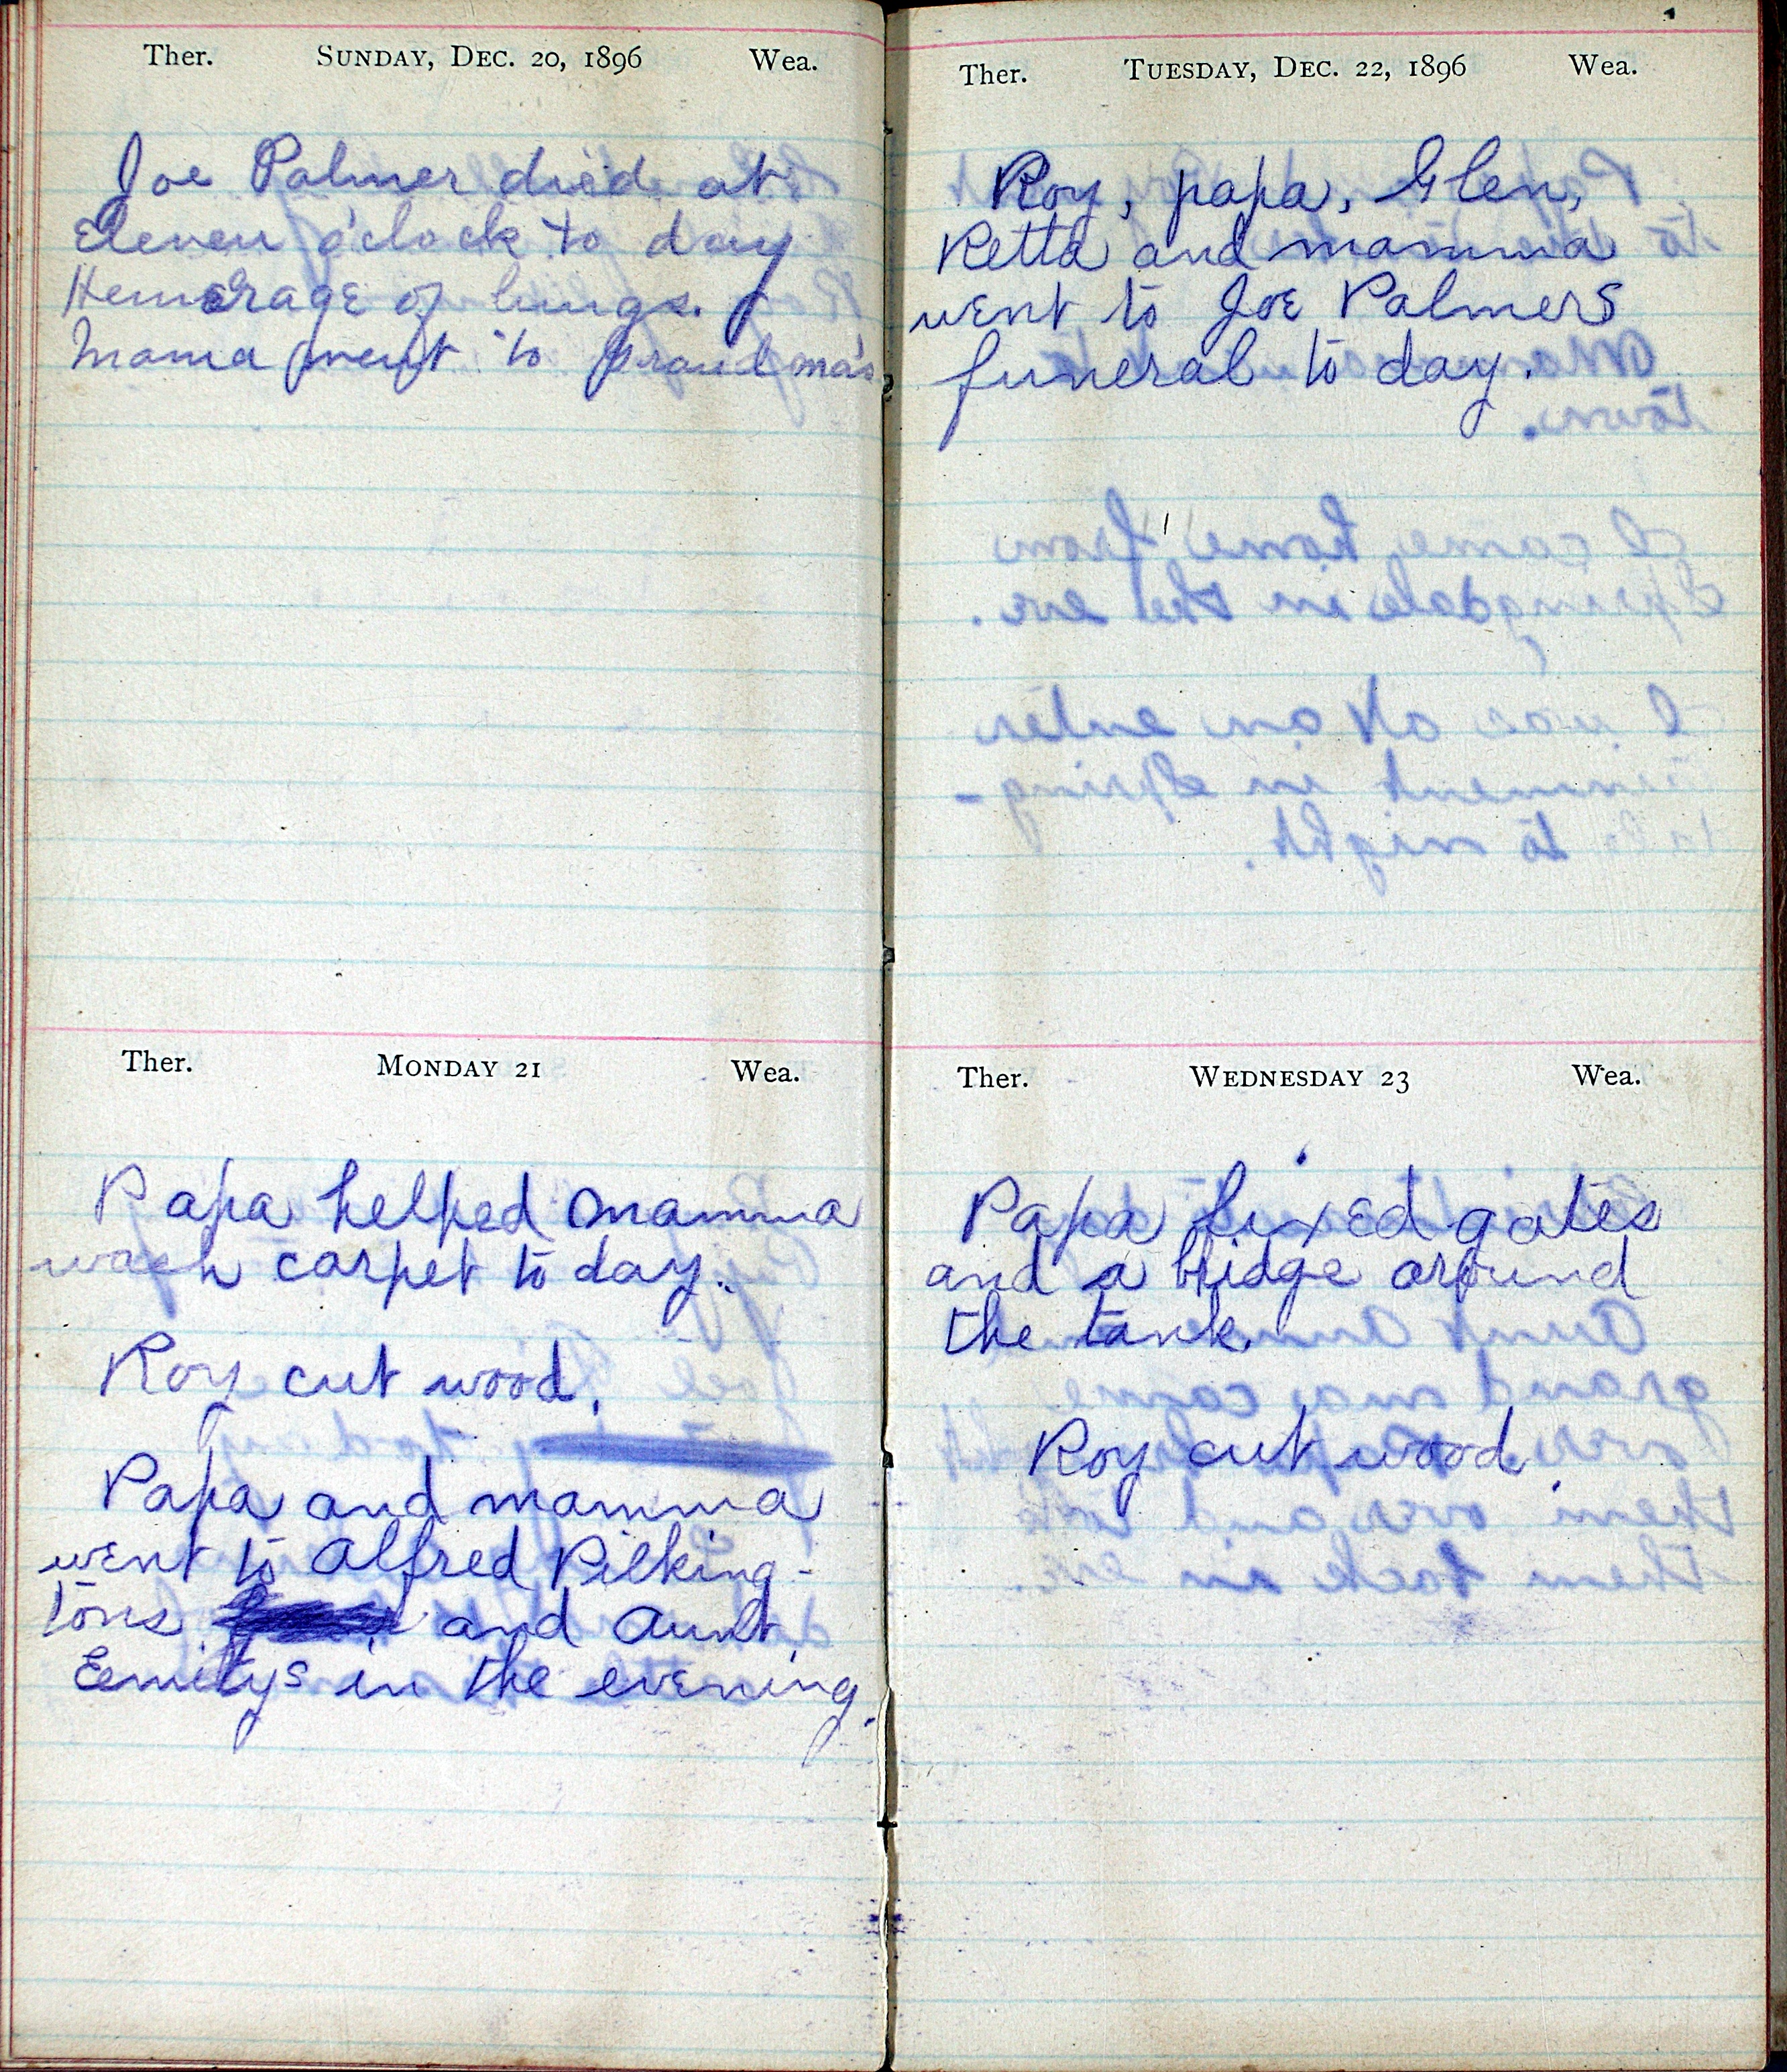 Ther. SUNDAY, DEC. 20, 1896 Wea.
Joe Palmer died at
Eleven o'clock to day
Hemerage of lungs.
Mama went to Grandma's
Ther. MONDAY 21 Wea.
Papa helped mamma
wash carpet to day.
Roy cut wood.
Papa and mamma
went to Alfred Pilking-
tons and Aunt
Emilys in the evening.
Ther. TUESDAY, DEC. 22, 1896 Wea.
Roy, papa, Glen,
Retta and mamma
went to Joe Palmers
funeral to day.
Ther. WEDNESDAY 23 Wea.
Papa fixed gates
and a bridge around
the tank.
Roy cut wood.